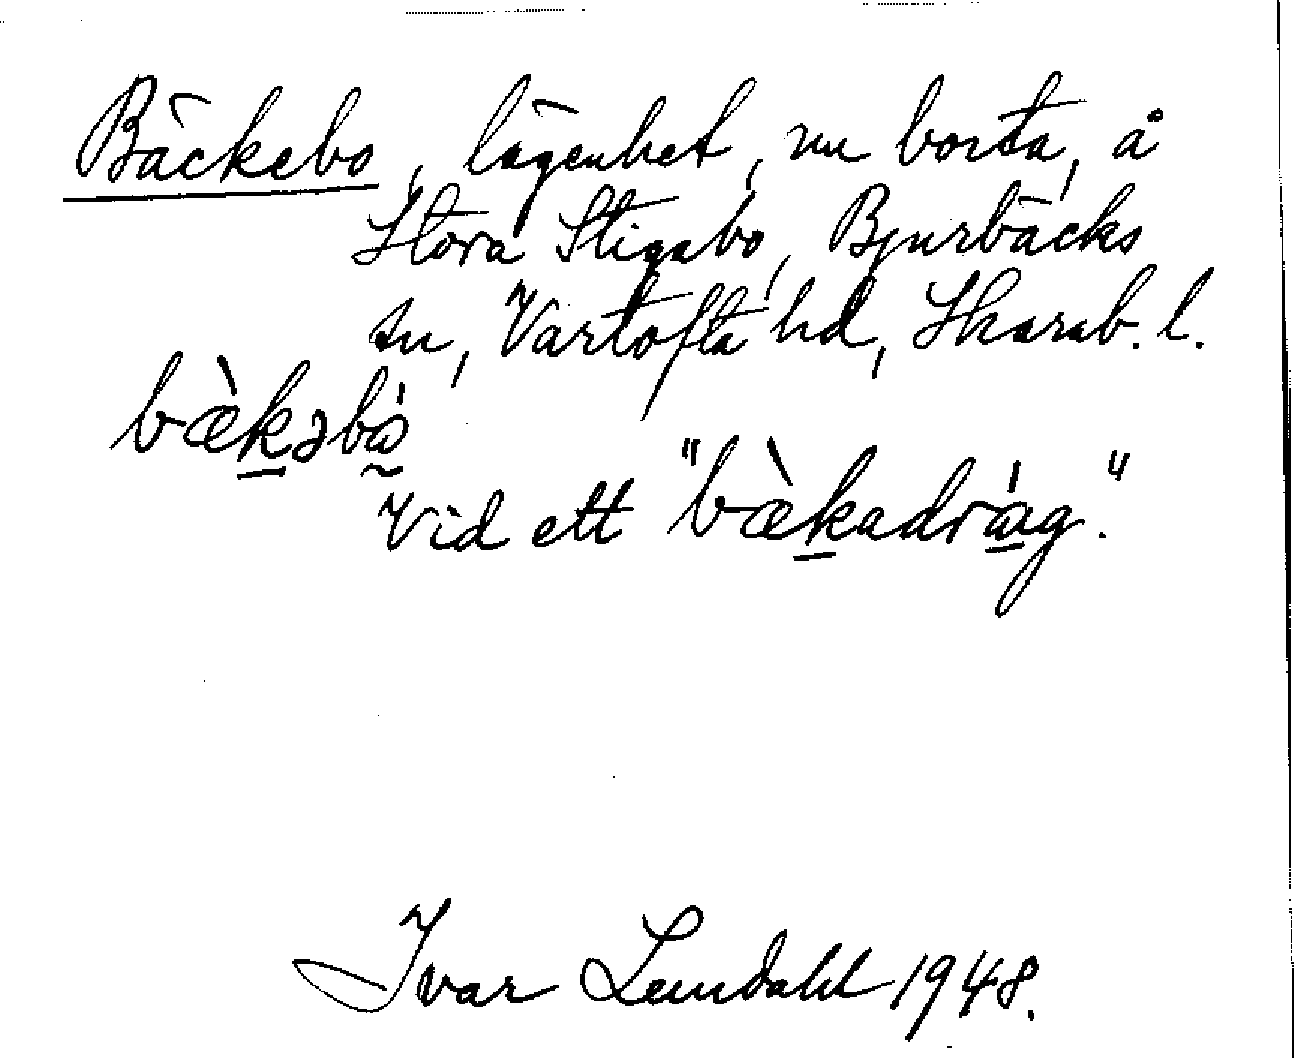 Bäckebo, lägenhet, nu borta, å
Stora Stigabo, Bjurbäcks
sn, Vartofta hd, Skarab. l.
bæ̀k̲əbò̰
Vid ett "bæ̀k̲adrá̲g."
Ivar Lundahl 1948.